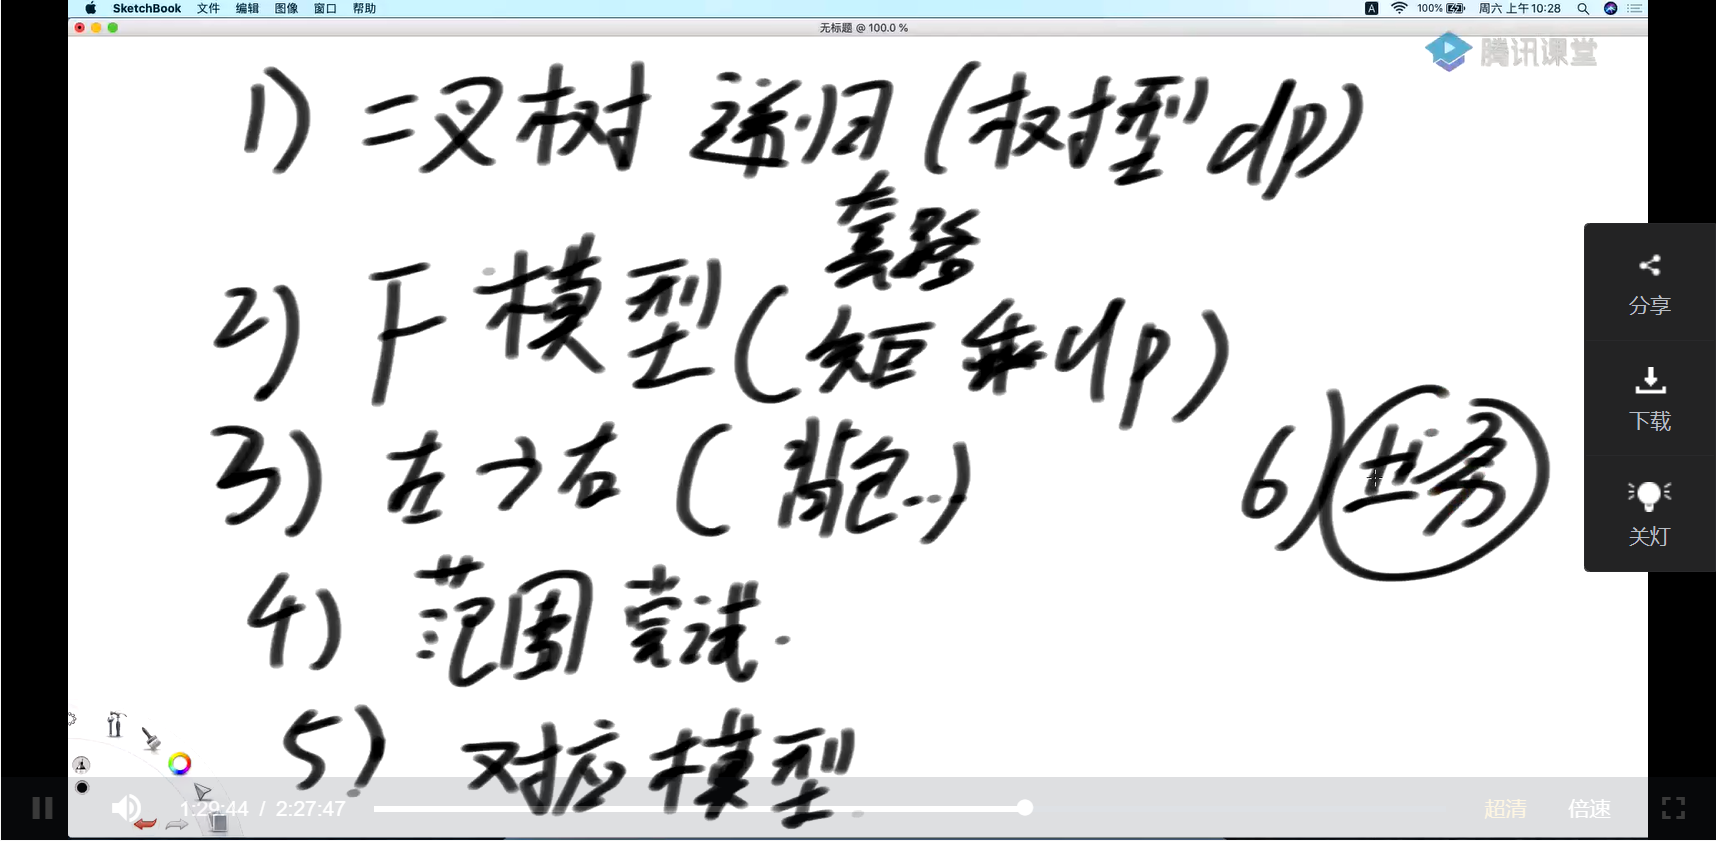 SketchBook 文件 编辑 图像 窗口 帮助 A 100% 周六 上午10:28
无标题 @ 100.0 %
腾讯课堂
1) 二叉树 递归 (树型dp)
套路
2) 模型 (矩乘dp)
3) 左→右 (背包..)
6) 业务
4) 范围尝试.
5) 对应模型
分享
下载
关灯
1:29:44 / 2:27:47 超清 倍速